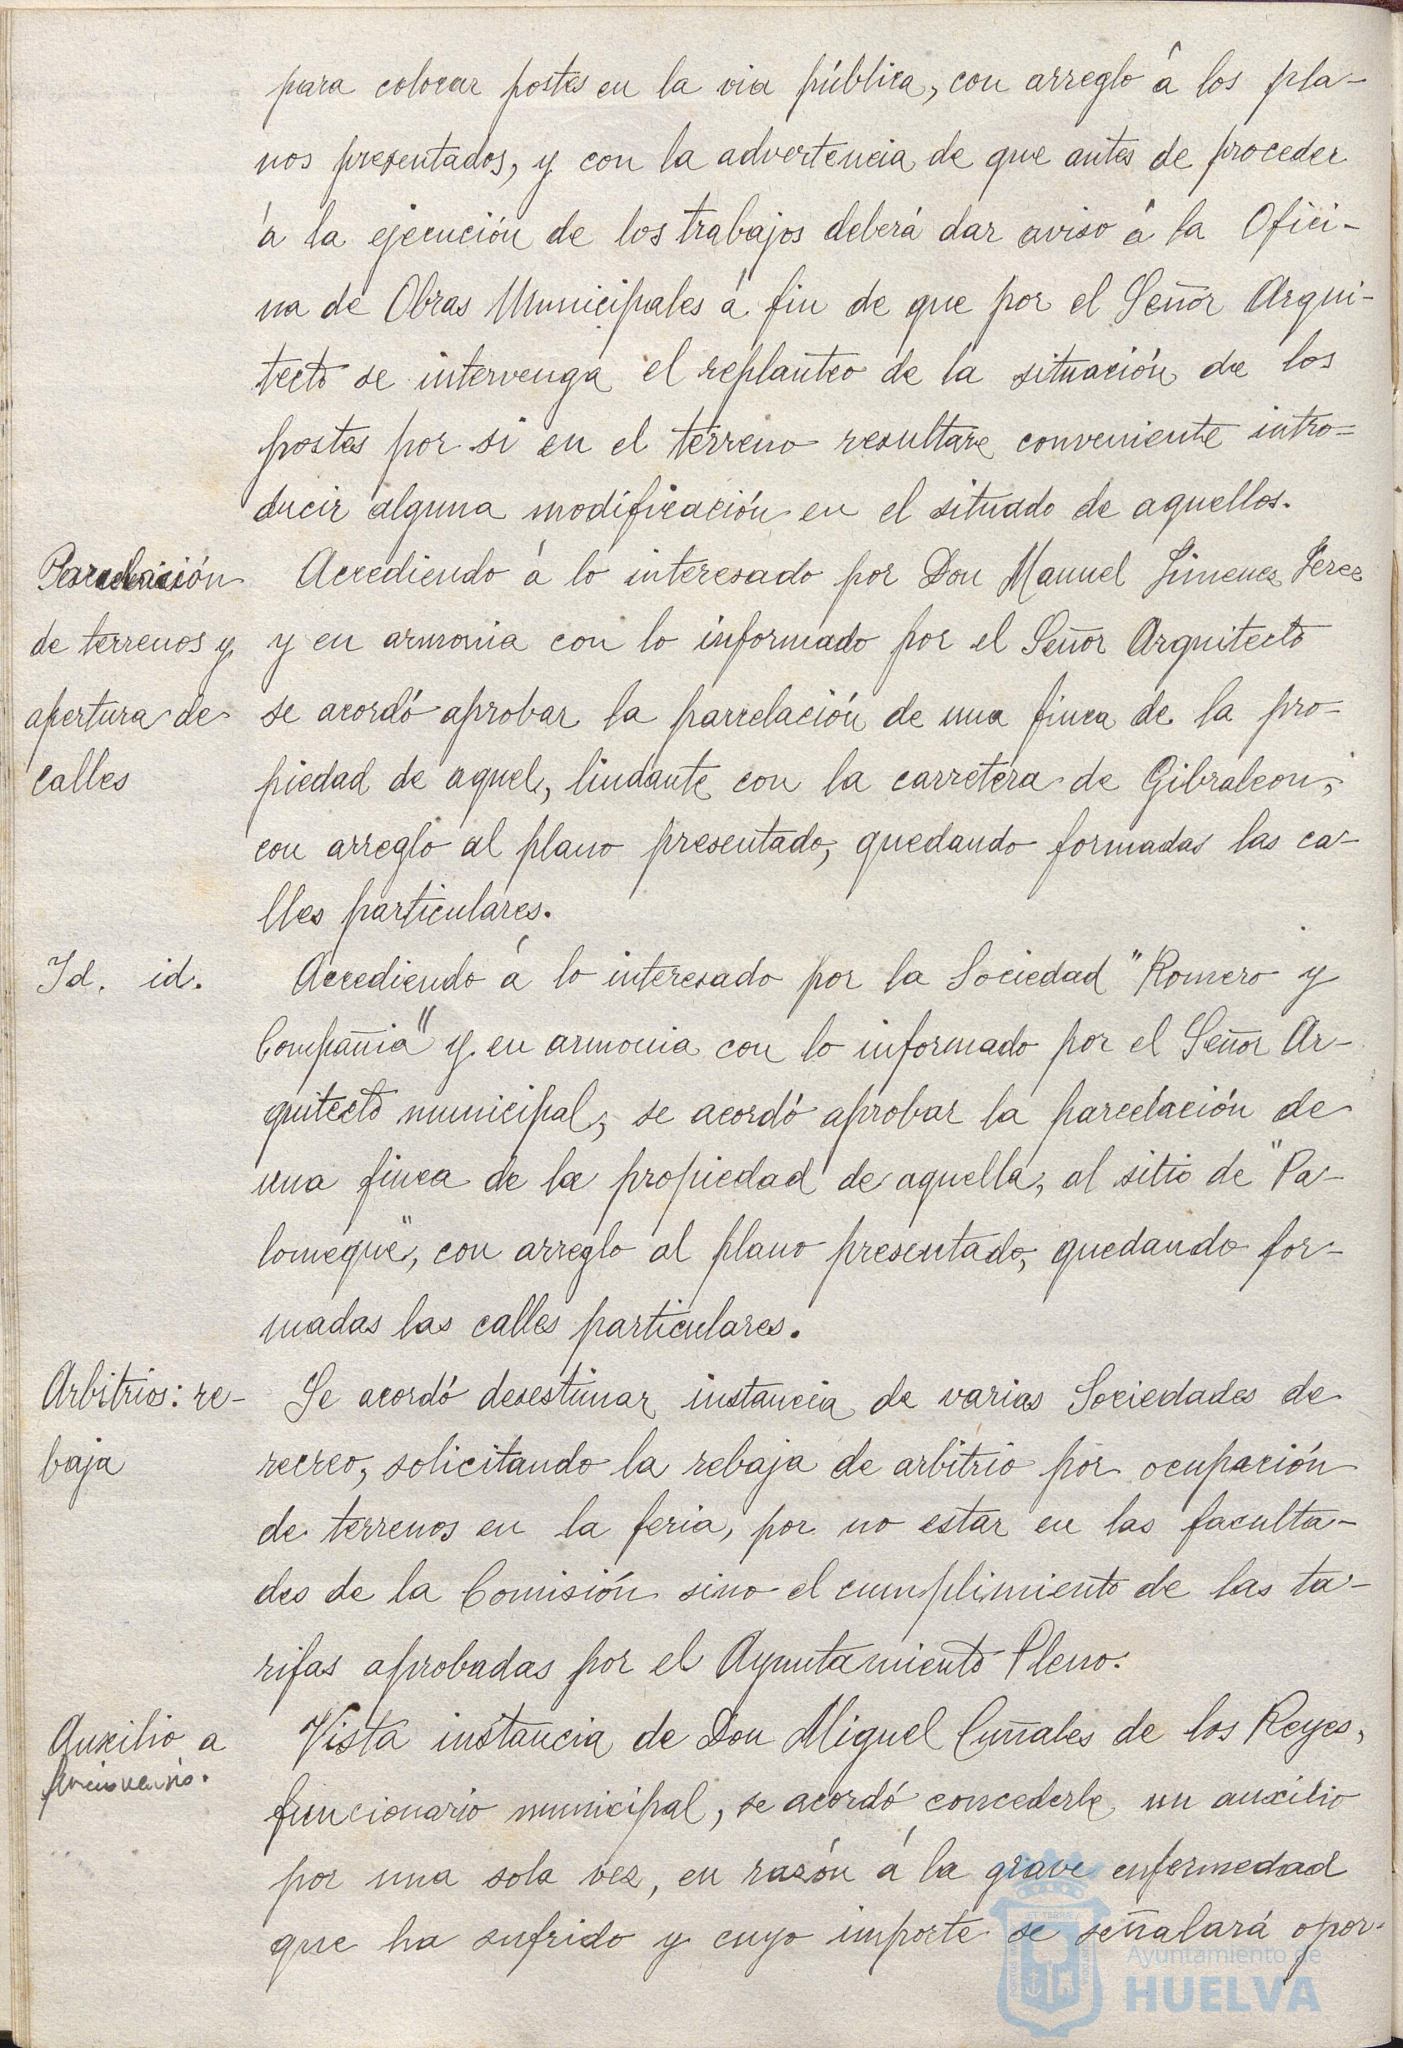 para colocar postes en la via pública, con arreglo á los pla-
nos presentados, y con la advertencia de que antes de proceder
á la ejecución de los trabajos deberá dar aviso á la Ofici-
na de Obras Municipales á fin de que por el Señor Arqui-
tecto se intervenga el replanteo de la situación de los
postes por si en el terreno resultare conveniente intro=
ducir alguna modificación en el situado de aquellos.
Parcelación
de terrenos y
apertura de
calles
Accediendo á lo interesado por Don Manuel Jimenez Jerez
y en armonia con lo informado por el Señor Arquitecto
se acordó aprobar la parcelación de una finca de la pro-
piedad de aquel, lindante con la carretera de Gibraleon,
con arreglo al plano presentado, quedando formadas las ca-
lles particulares.
Id. id.
Accediendo á lo interesado por la Sociedad "Romero y
Compañia" y en armonia con lo informado por el Señor Ar-
quitecto municipal, se acordó aprobar la parcelación de
una finca de la propiedad de aquella, al sitio de "Pa-
lomeque", con arreglo al plano presentado, quedando for-
madas las calles particulares.
Arbitrios: re-
baja
Se acordó desestimar instancia de varias Sociedades de
recreo, solicitando la rebaja de arbitrio por ocupación
de terrenos en la feria, por no estar en las faculta-
des de la Comisión sino el cumplimiento de las ta-
rifas aprobadas por el Ayuntamiento Pleno.
Auxilio a
funcionario.
Vista instancia de Don Miguel Cuñales de los Reyes,
funcionario municipal, se acordó concederle un auxilio
por una sola vez, en razón á la grave enfermedad
que ha sufrido y cuyo importe se señalará opor-
Ayuntamiento de
HUELVA